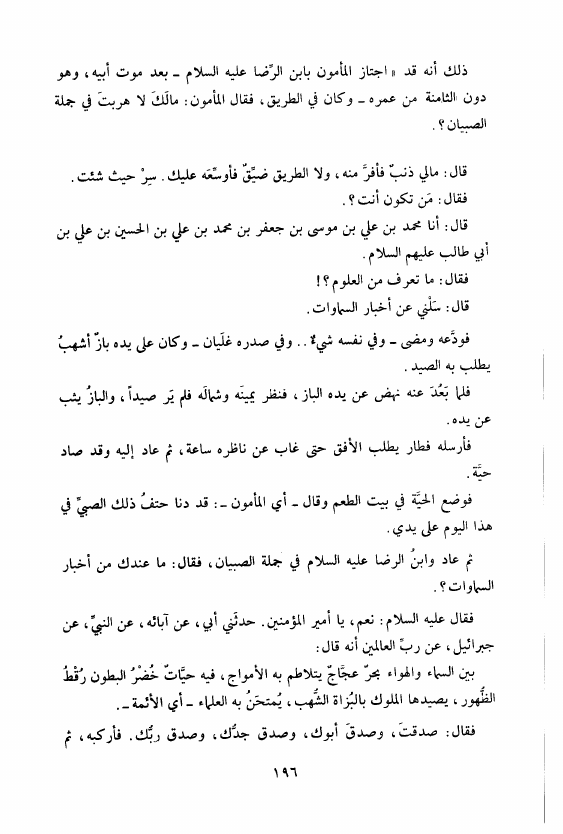 ذلك أنه قد « اجتاز المأمون بابن الرِّضا عليه السلام ـ بعد موت أبيه، وهو
دون الثامنة من عمره ـ وكان في الطريق، فقال المأمون: مالَكَ لا هربتَ في جملة
الصبيان؟.
قال: مالي ذنبٌ فأفرَّ منه، ولا الطريق ضيِّقٌ فأوسِّعَه عليك. سِرْ حيث شئت.
فقال: مَن تكون أنت؟.
قال: أنا محمد بن علي بن موسى بن جعفر بن محمد بن علي بن الحسين بن علي بن
أبي طالب عليهم السلام.
فقال: ما تعرف من العلوم؟!
قال: سَلْني عن أخبار السماوات.
فودَّعه ومضى ـ وفي نفسه شيءٌ.. وفي صدره غلَيان ـ وكان على يده بازٌ أشهبُ
يطلب به الصيد.
فلما بَعُدَ عنه نهض عن يده الباز، فنظر يمينَه وشمالَه فلم يَر صيداً، والبازُ يثب
عن يده.
فأرسله فطار يطلب الأفق حتى غاب عن ناظره ساعة، ثم عاد إليه وقد صاد
حيَّة.
فوضع الحيَّة في بيت الطعم وقال ـ أي المأمون ـ: قد دنا حتفُ ذلك الصبيِّ في
هذا اليوم على يدي.
ثم عاد وابنُ الرضا عليه السلام في جملة الصبيان، فقال: ما عندك من أخبار
السماوات؟.
فقال عليه السلام: نعم، يا أمير المؤمنين. حدثَني أبي، عن آبائه، عن النبيِّ، عن
جبرائيل، عن ربِّ العالمين أنه قال:
بين السماء والهواء بحرٌ عجَّاجٌ يتلاطم به الأمواج، فيه حيَّاتٌ خُضْرُ البطون رُقْطُ
الظُّهور، يصيدها الملوك بالبُزاة الشُّهب، يُمتحَنُ به العلماء ـ أي الأئمة ـ.
فقال: صدقتَ، وصدقَ أبوك، وصدق جدُّك، وصدق ربُّك. فأركبه، ثم
١٩٦